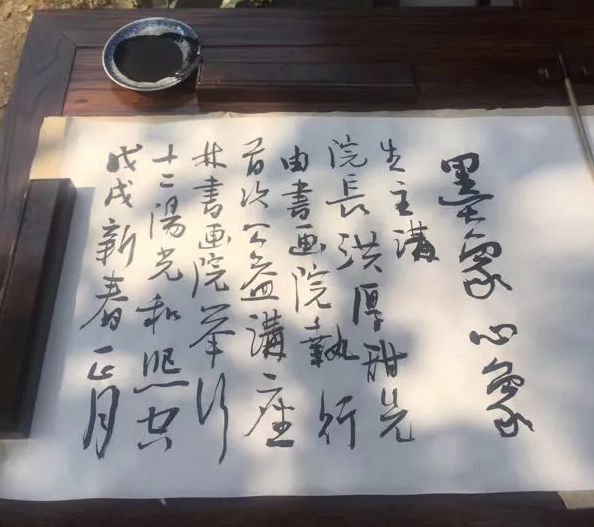 戊戌新春正月
十二陽光和煦空
林書画院举行
首次公益講座
由書画院執行
院長洪厚甜先
生主講
墨象心象